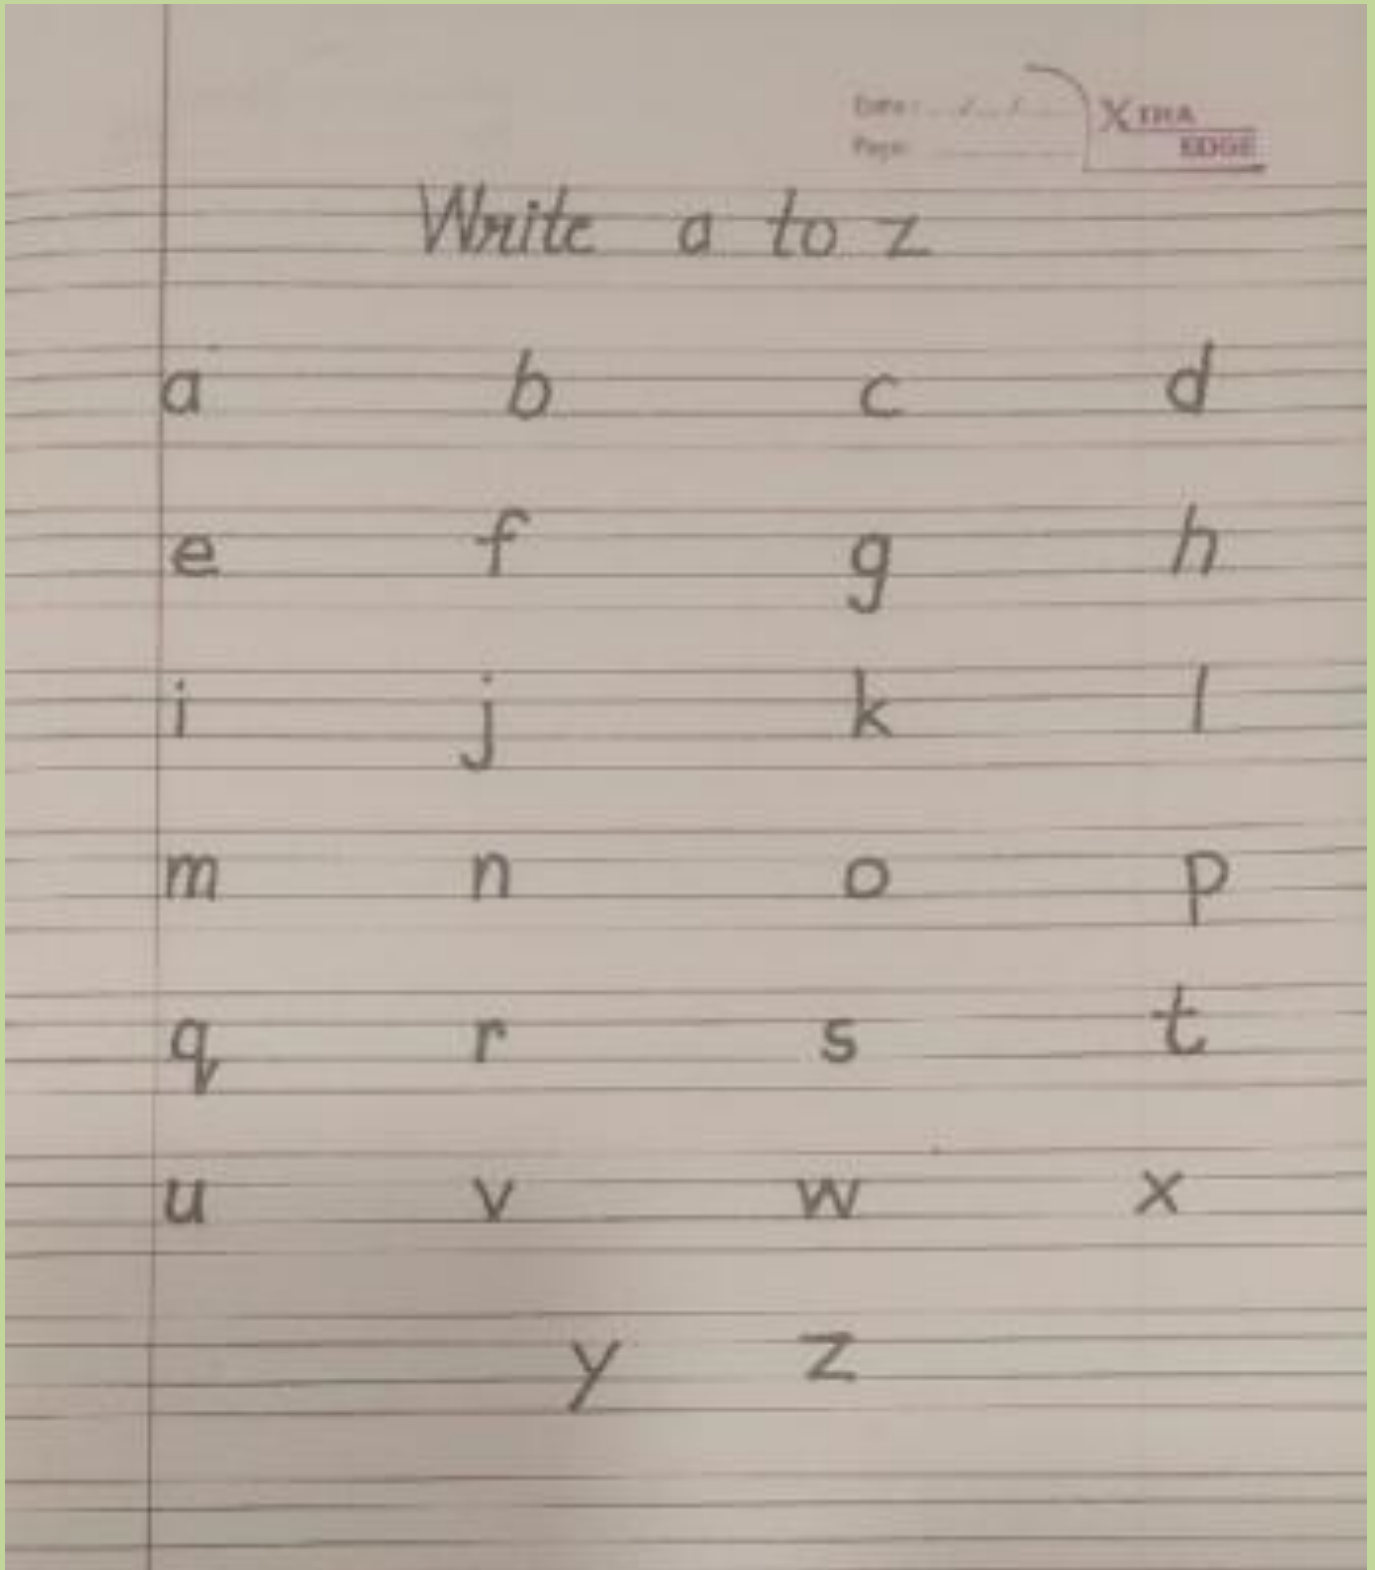 Date: ../../..
Page:
XTRA
EDGE
Write a to z
a b c d
e f g h
i j k l
m n o p
q r s t
u v w x
y z